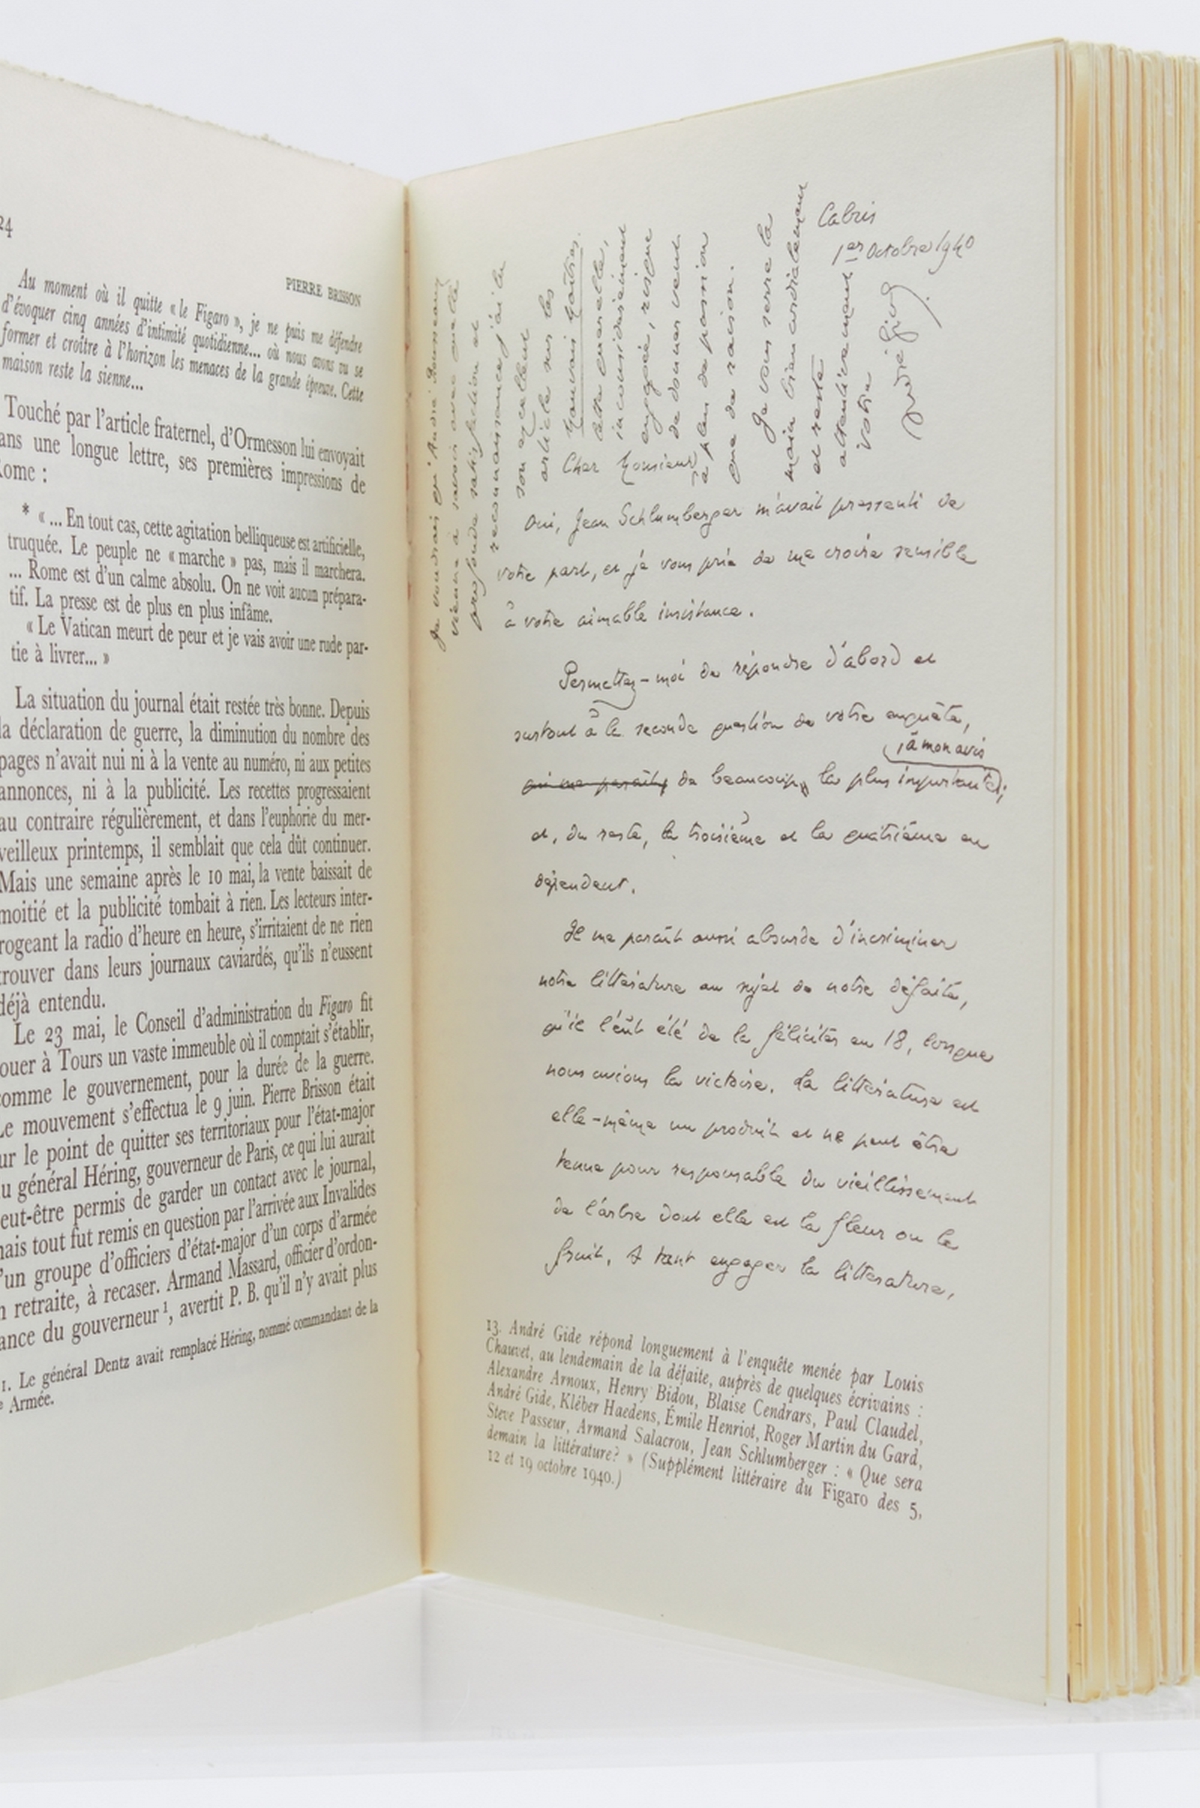 24
PIERRE BRISSON
Au moment où il quitte « le Figaro », je ne puis me défendre
d'évoquer cinq années d'intimité quotidienne... où nous avons vu se
former et croître à l'horizon les menaces de la grande épreuve. Cette
maison reste la sienne...
Touché par l'article fraternel, d'Ormesson lui envoyait
ans une longue lettre, ses premières impressions de
Rome :
* « ... En tout cas, cette agitation belliqueuse est artificielle,
truquée. Le peuple ne « marche » pas, mais il marchera.
... Rome est d'un calme absolu. On ne voit aucun prépara-
tif. La presse est de plus en plus infâme.
« Le Vatican meurt de peur et je vais avoir une rude par-
tie à livrer... »
La situation du journal était restée très bonne. Depuis
la déclaration de guerre, la diminution du nombre des
pages n'avait nui ni à la vente au numéro, ni aux petites
annonces, ni à la publicité. Les recettes progressaient
au contraire régulièrement, et dans l'euphorie du mer-
veilleux printemps, il semblait que cela dût continuer.
Mais une semaine après le 10 mai, la vente baissait de
moitié et la publicité tombait à rien. Les lecteurs inter-
rogeant la radio d'heure en heure, s'irritaient de ne rien
trouver dans leurs journaux caviardés, qu'ils n'eussent
déjà entendu.
Le 23 mai, le Conseil d'administration du Figaro fit
louer à Tours un vaste immeuble où il comptait s'établir,
comme le gouvernement, pour la durée de la guerre.
Le mouvement s'effectua le 9 juin. Pierre Brisson était
ur le point de quitter ses territoriaux pour l'état-major
u général Héring, gouverneur de Paris, ce qui lui aurait
eut-être permis de garder un contact avec le journal,
mais tout fut remis en question par l'arrivée aux Invalides
'un groupe d'officiers d'état-major d'un corps d'armée
n retraite, à recaser. Armand Massard, officier d'ordon-
ance du gouverneur¹, avertit P. B. qu'il n'y avait plus
1. Le général Dentz avait remplacé Héring, nommé commandant de la
e Armée.
Cabris
1er Octobre 1940
Cher Monsieur
Oui, Jean Schlumberger m'avait pressenti de
votre part, et je vous prie de me croire sensible
à votre aimable insistance.
Permettez-moi de répondre d'abord et
surtout à la seconde question de votre enquête,
, à mon avis
qui me paraît, de beaucoup, la plus importante ;
et, du reste, la troisième et la quatrième en
dépendent.
Il me paraît aussi absurde d'incriminer
notre littérature au sujet de notre défaite,
qu'il l'eût été de la féliciter en 18, lorsque
nous avions la victoire. La littérature est
elle-même un produit et ne peut être
tenue pour responsable du vieillissement
de l'arbre dont elle est la fleur ou le
fruit. A tant engager la littérature,
Je voudrais qu'André Rousseaux
vienne à savoir avec quelle
profonde satisfaction et
reconnaissance j'ai lu
son excellent
article sur les
Mauvais Maîtres.
Cette querelle,
inconsidérément
engagée, risque
de donner vent
à plus de passion
que de raison.
Je vous serre la
main bien cordialement
et reste
attentivement
votre
André Gide
13. André Gide répond longuement à l'enquête menée par Louis
Chauvet, au lendemain de la défaite, auprès de quelques écrivains :
Alexandre Arnoux, Henry Bidou, Blaise Cendrars, Paul Claudel,
André Gide, Kléber Haedens, Émile Henriot, Roger Martin du Gard,
Steve Passeur, Armand Salacrou, Jean Schlumberger : « Que sera
demain la littérature? » (Supplément littéraire du Figaro des 5,
12 et 19 octobre 1940.)